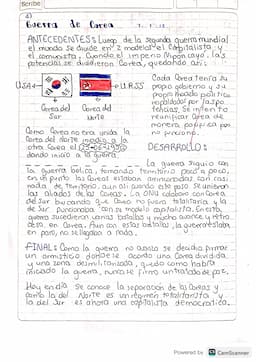 Escribe
Guerra de Corea
ANTECEDENTES: Luego de la segunda guerra mundial
el mundo se divide en 2 modelos el Capitalista y
el comunista. Cuando el imperio Nipon cayo, las
potencias se dividieron Corea, quedando asi:
USA
U.R.S.S
Corea del
Sur
Corea del
Norte
Cada Corea tenia su
propio gobierno y su
propio modelo politico
respaldado por las po-
tencias. Se intento
reunificar Corea de
manera pacifica pero
no
Como Corea no era unida la
Corea del Norte invadio a la
otra Corea el 25-06-1950
dando inicio a la guerra.
DESARROLLO:
La guerra siguio con
la guerra belica, tomando territorio poco a poco,
en un punto las Coreas estaban arrinconadas con casi
nada de territorio, aun asi cuando esto paso se unieron
los aliados de las Coreas. La ONU colaboro con Corea
del Sur buscando que Corea no fuera totalitaria y la
de Sur funcionaba con se modelo capitalista. En esta
guerra sucedieron varias batallas y mucho avance y retro-
ceso en Corea. Aun con estas batallas, la guerra estaba
en paro, no se llegaba a nada.
FINAL: Como la guerra no acaba se decidio firmar
un armisticio donde se acordo una Corea dividida
y una zona desmilitarizada, quedo como habia
iniciado la guerra, nunca se firmo un tratado de paz.
Hoy en dia se conoce la separacion de las Coreas y
como la del Norte es un regimen totalitarista y
la del Sur es ahora una capitalista democratica.
Powered by CS CamScanner